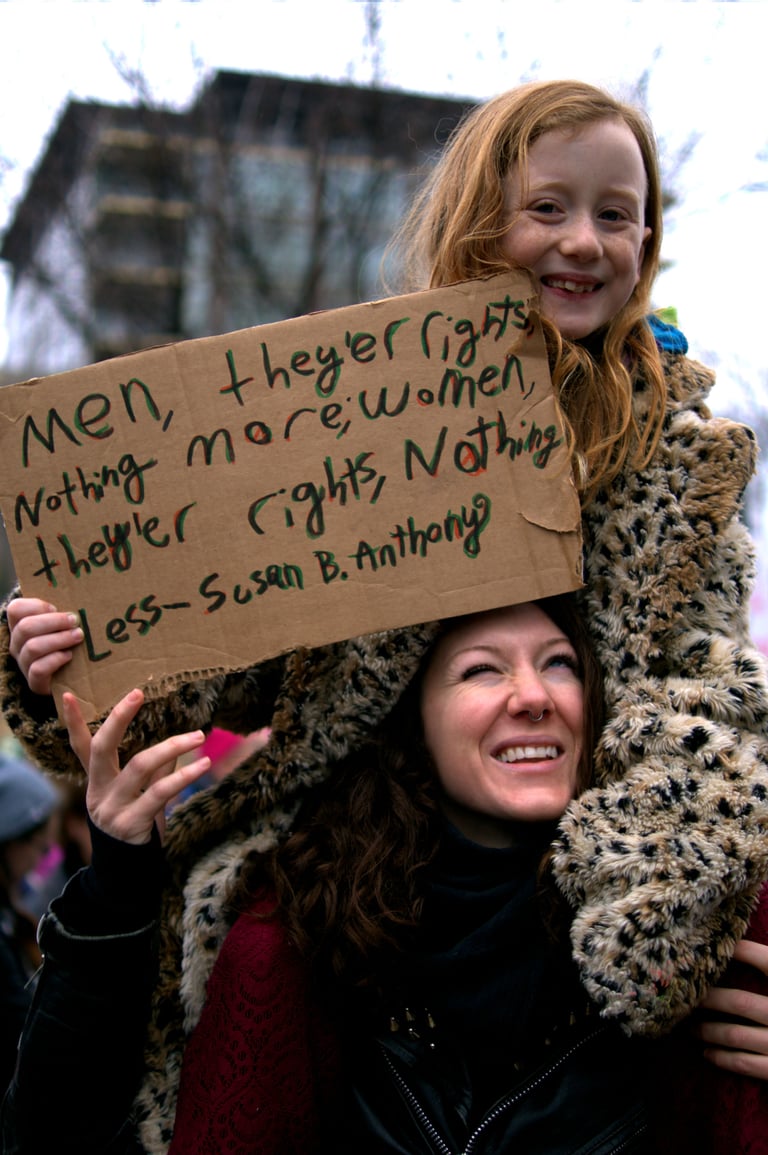 Men, they'er rights,
Nothing more; women,
they'er rights, Nothing
Less- Susan B. Anthony